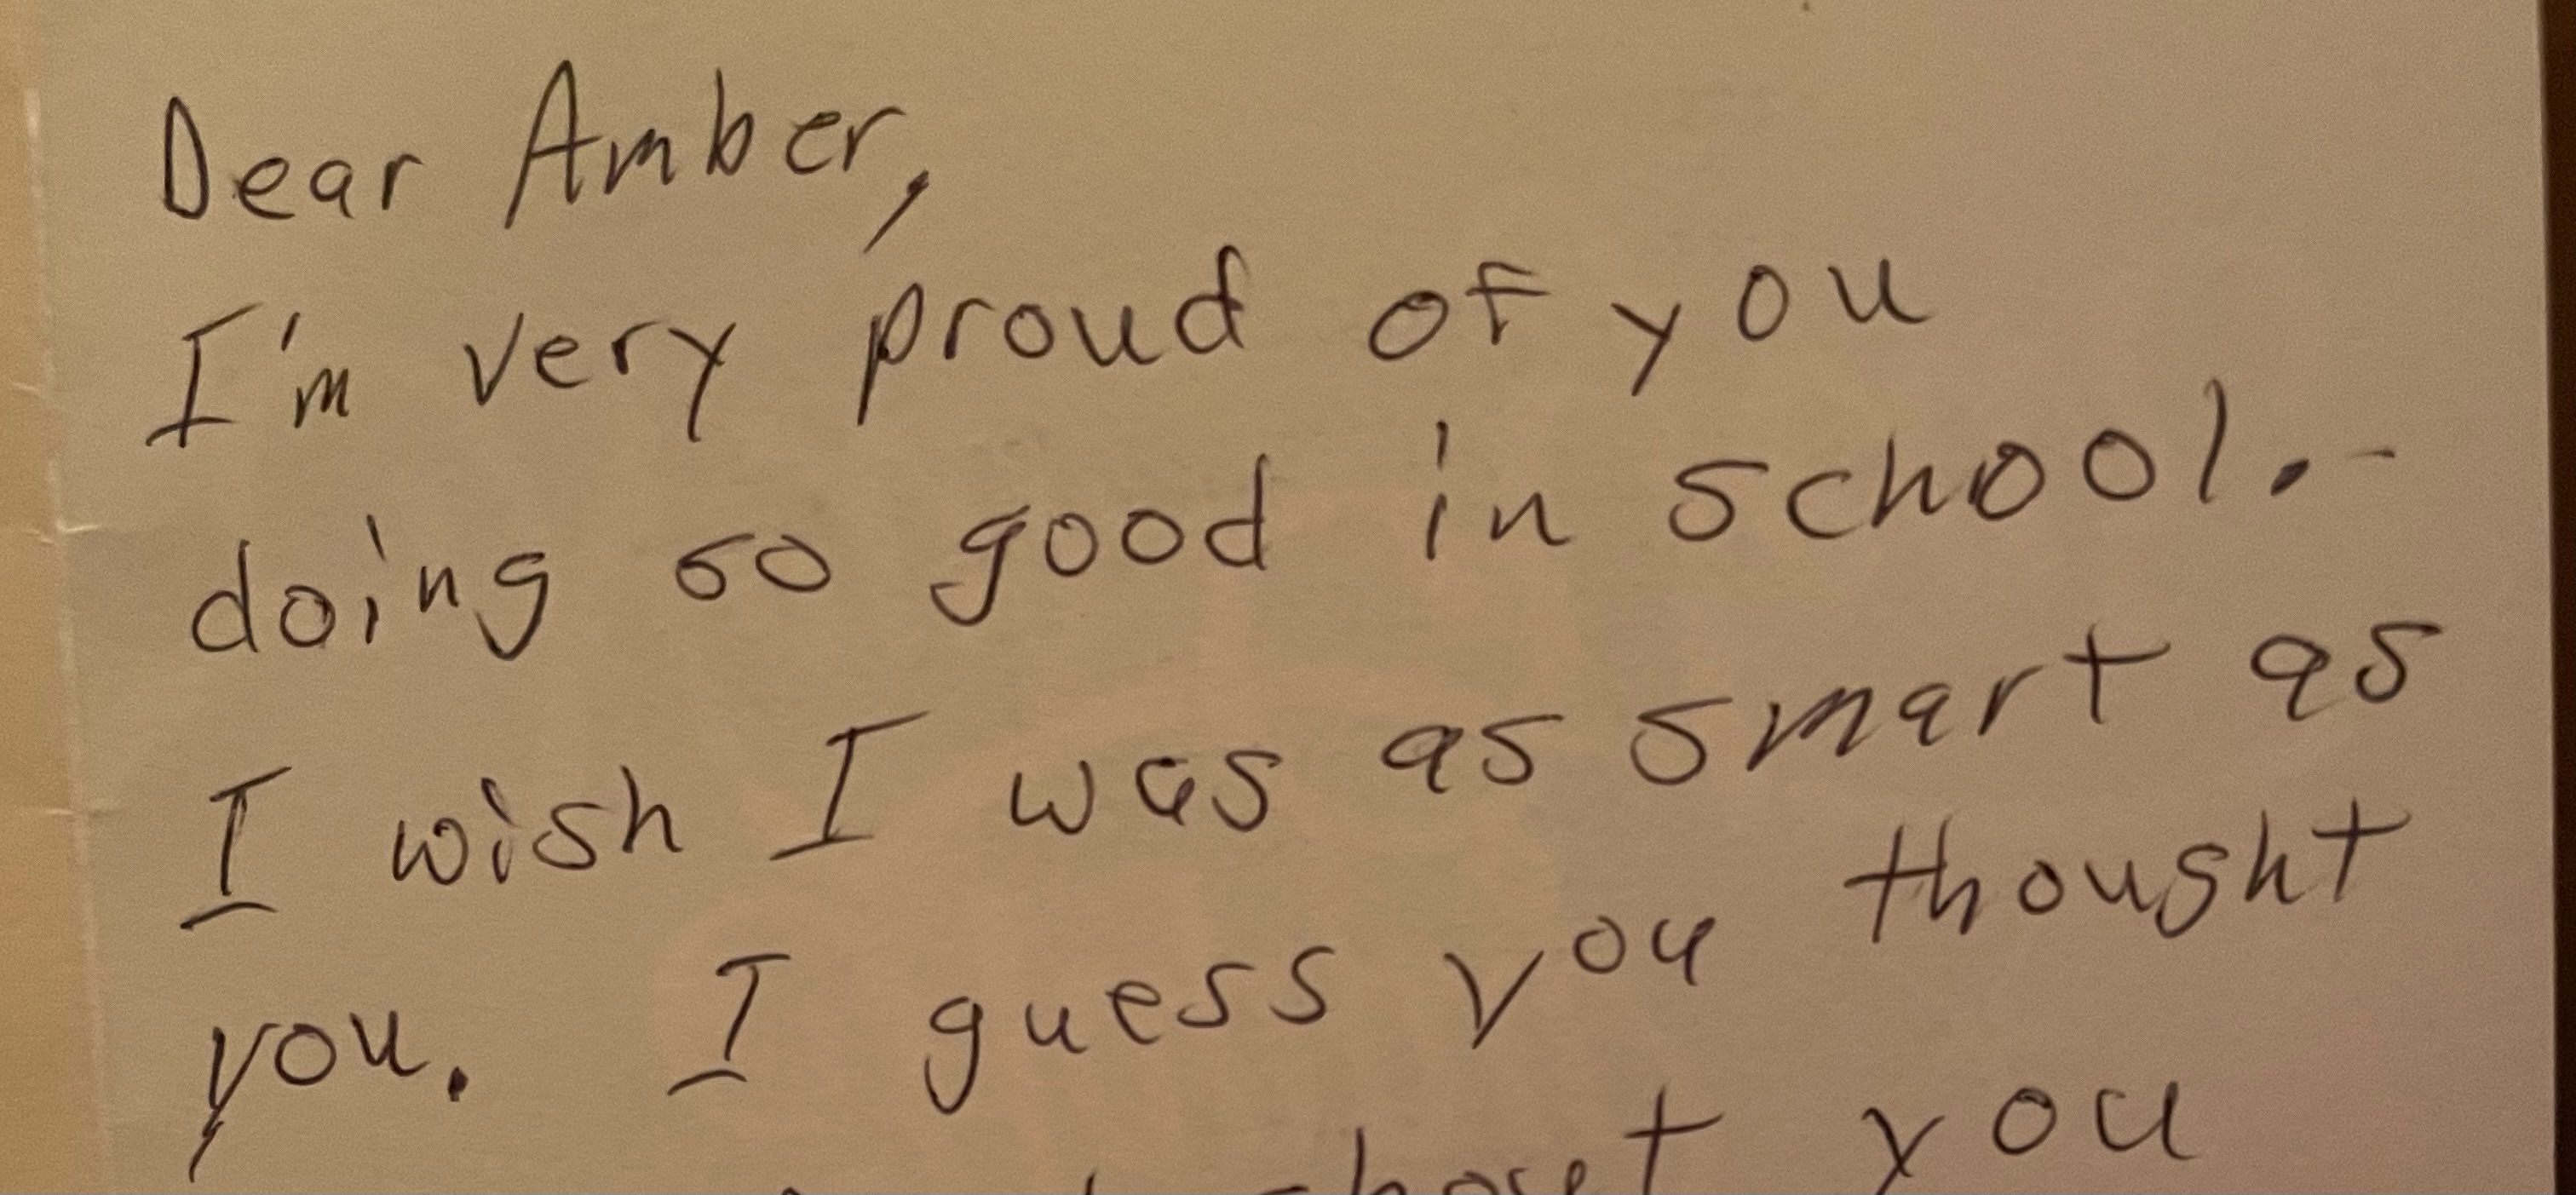 Dear Amber,
I'm very proud of you
doing so good in school.
I wish I was as smart as
you. I guess you thought
you